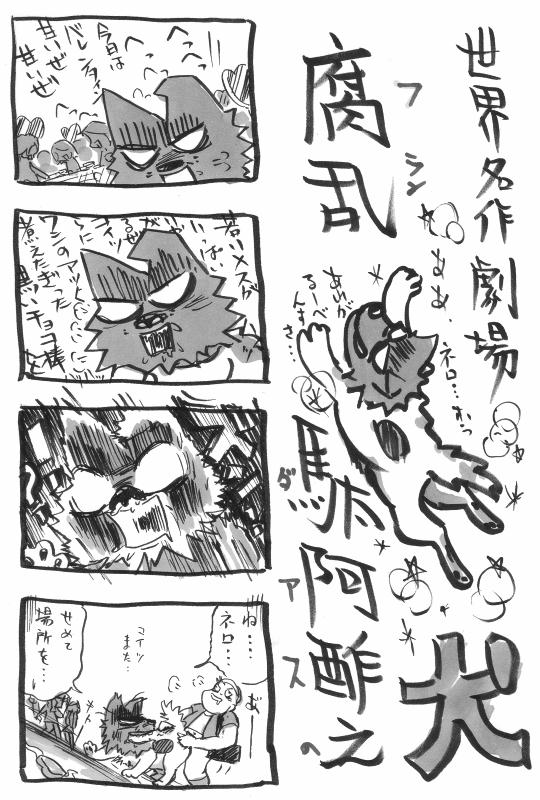 世界名作劇場
腐乱駄阿酢之
フランダアスの
犬
ああ、
ネロ…おっ
あいが
るーべ
んす
さ…
へっ
へっ
へっ
今日は
バレンタイン
甘いぜ
甘いぜ
若いメスが
いっぱい
コイツらに
ワシのアツアツに
煮えたぎった
黒いチョコ棒
ね…
ネロ…
コイツ
また…
せめて
場所を…
あ